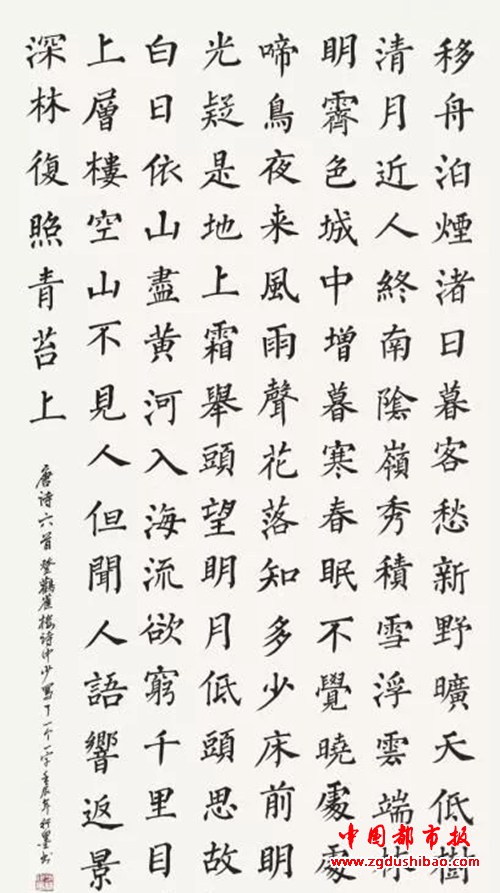 移舟泊煙渚日暮客愁新野曠天低樹
清月近人終南陰嶺秀積雪浮雲端林
明霽色城中增暮寒春眠不覺曉處處
啼鳥夜来風雨聲花落知多少床前明
光疑是地上霜舉頭望明月低頭思故
白日依山盡黄河入海流欲窮千里目
上層樓空山不見人但聞人語響返景
深林復照青苔上
唐诗六首登鸛雀樓诗中少寫了一个一字壬辰年墨书
中国都市报
www.zgdushibao.com